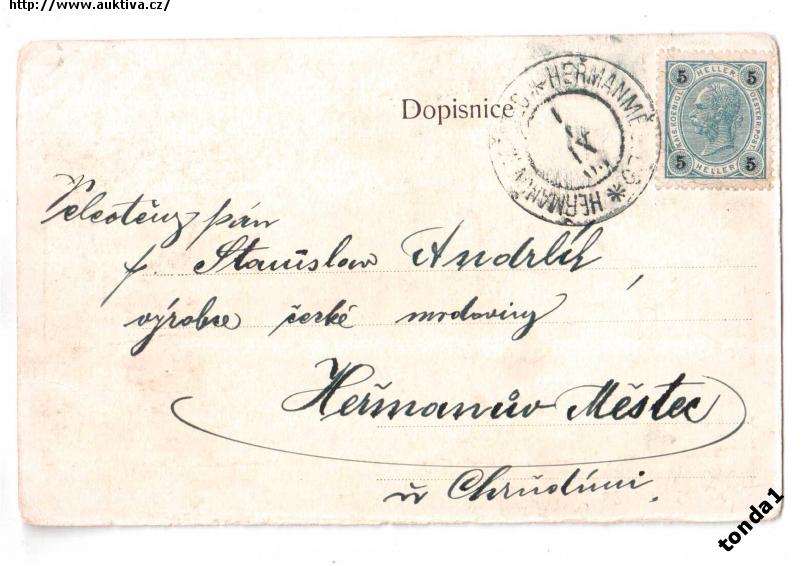 http://www.auktiva.cz/
Dopisnice
5 HELLER 5
KAIS.KOENIGL. OESTERR.POST.
5 HELLER 5
Velectěný pán
p. Stanislav Andrlík,
výrobce české medoviny
Heřmanův Městec
u Chrudimi.
tonda1